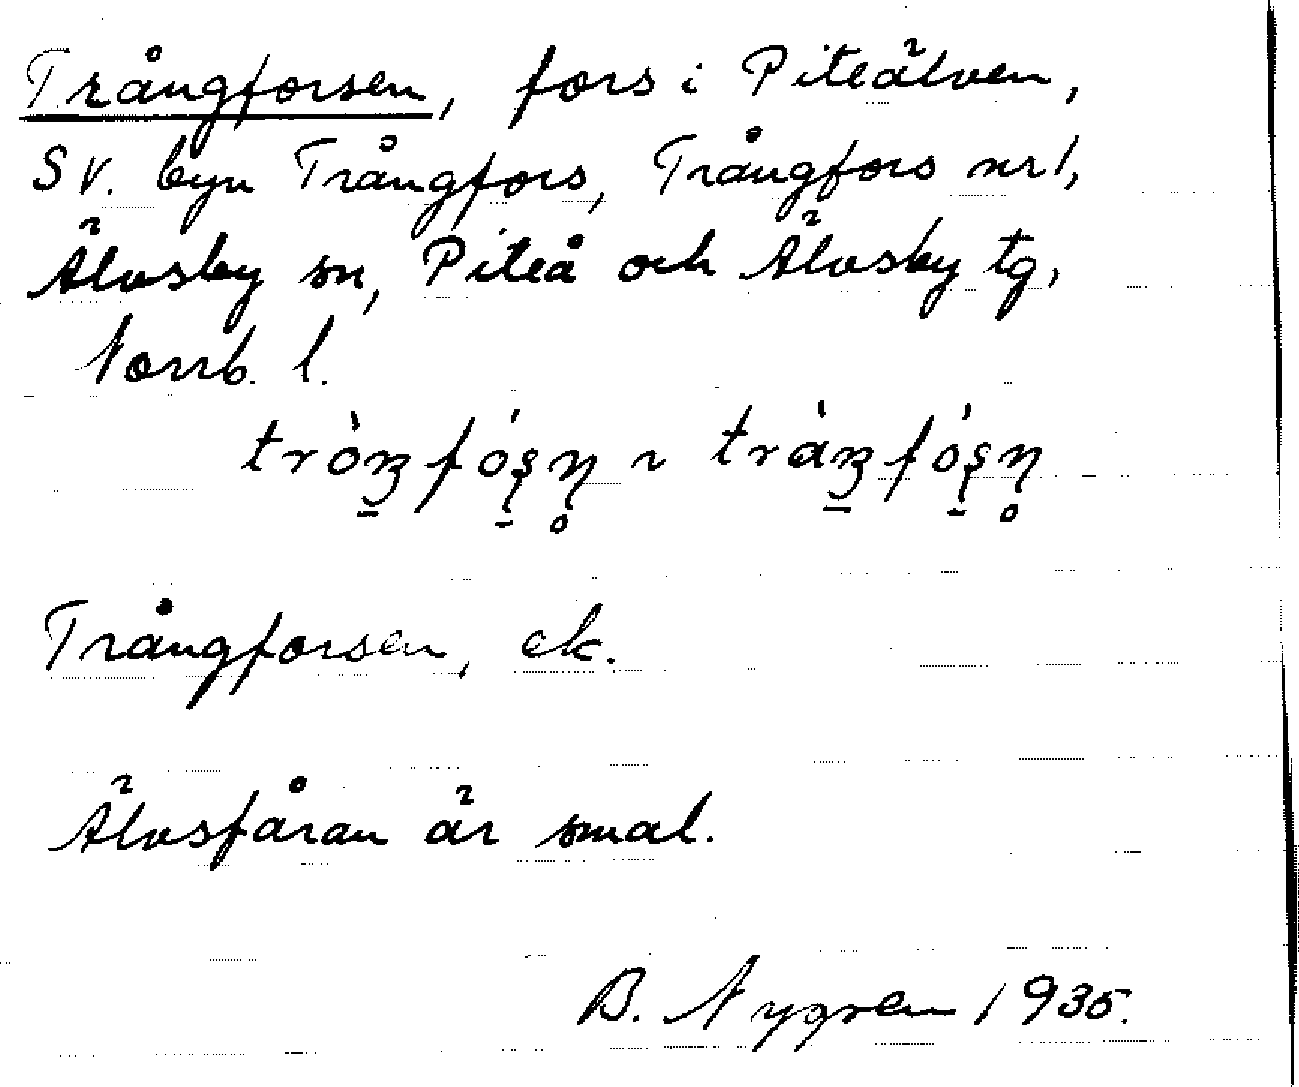 Trångforsen, fors i Piteälven,
SV. byn Trångfors, Trångfors nr 1,
Älvsby sn, Piteå och Älvsby tg,
Norrb. l.
Trångforsen, ek.
Älvsfåran är smal.
B. Nygren 1935.